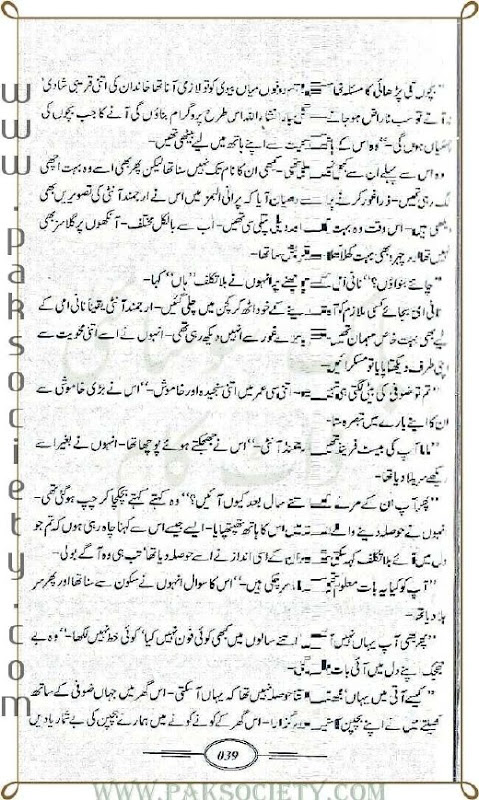 "بچوں کی پڑھائی کا مسئلہ تھا دونوں میاں بیوی کو تو لازمی آنا تھا خاندان کی اتنی قریبی شادی
نہ آتے تو سب ناراض ہو جاتے انشاء اللہ اس طرح پروگرام بناؤں گی آنے کا جب بچوں کی
چھٹیاں ہوں گی-" وہ اس کے ہاتھ سے اپنے ہاتھ میں لیے بیٹھی تھیں-
وہ اس سے پہلے ان سے کبھی ملی تھی- کبھی ان کا نام تک نہیں سنا تھا لیکن پھر بھی اسے وہ بہت اچھی
لگ رہی تھیں- ذرا غور کرنے پر دھیان آیا کہ پرانی البمز میں اس نے ارجمند آنٹی کی تصویریں بھی
دیکھی ہیں- اس وقت وہ بہت دبلی پتلی سی تھیں- اب سے بالکل مختلف- آنکھوں پر گلاسز بھی
نہیں تھا اور چہرہ بھی بہت کھلا
"چائے بنواؤں؟" نانی پوچھنے پہ انہوں نے بلا تکلف "ہاں" کہا-
نانی امی بجائے کسی ملازم کے خود اٹھ کر کچن میں چلی گئیں- ارجمند آنٹی یقیناً نانی امی کے
لیے بھی بہت خاص مہمان تھیں- بڑے غور سے انہیں دیکھ رہی تھی- انہوں نے اسے اتنی محویت سے
اپنی طرف دیکھتا پایا تو مسکرائیں-
"تم تو ضوفی کی بیٹی لگتی ہی اتنی سی عمر میں اتنی سنجیدہ اور خاموش-" اس نے بڑی خاموشی سے
ان کا اپنے بارے میں تبصرہ سنا-
"ماما آپ کی بیسٹ فرینڈ تھیں ارجمند آنٹی-" اس نے جھجکتے ہوئے پوچھا تھا- انہوں نے بغیر اسے
دیکھے سر ہلا دیا تھا-
"پھر آپ ان کے مرنے کے اتنے سال بعد کیوں آئیں؟" وہ کہتے کہتے ہچکچا کر چپ ہو گئی تھی-
انہوں نے حوصلہ دینے والے انداز میں اس کا ہاتھ تھپتھپایا- ایسے جیسے اس سے کہنا چاہ رہی ہوں کہ تم جو
دل میں آئے بلا تکلف کہہ سکتی ان کے اسی انداز نے اسے حوصلہ دیا تھا تب ہی وہ آگے بولی-
"آپ کو کیا یہ بات معلوم مر چکی ہیں-" اس کا سوال انہوں نے سکون سے سنا تھا اور پھر سر
ہلا دیا تھا-
"پھر بھی آپ یہاں نہیں آ اتنے سالوں میں کبھی کوئی فون نہیں کیا' کوئی خط نہیں لکھا-" وہ بے
جھجک اپنے دل میں آئی بات
"کیسے آتی میں یہاں' مجھ اتنا حوصلہ نہیں تھا کہ یہاں آ سکتی- اس گھر میں جہاں ضوفی کے ساتھ
کھیلتے میں نے اپنے بچپن کا گزارا- اس گھر کے کونے کونے میں ہمارے بچپن کی بے شمار یادیں
039
www.paksociety.com
WWW.PAKSOCIETY.COM